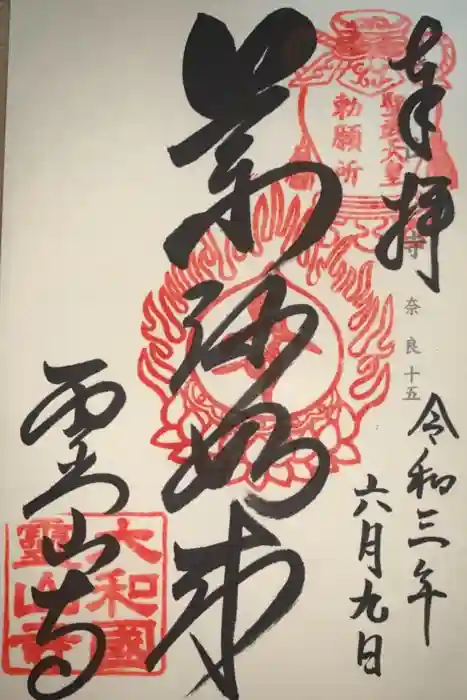 奉拝
山寺 奈良十五
令和三年
六月九日
聖武天皇
勅願所
薬師如来
霊山寺
大和國
靈山寺